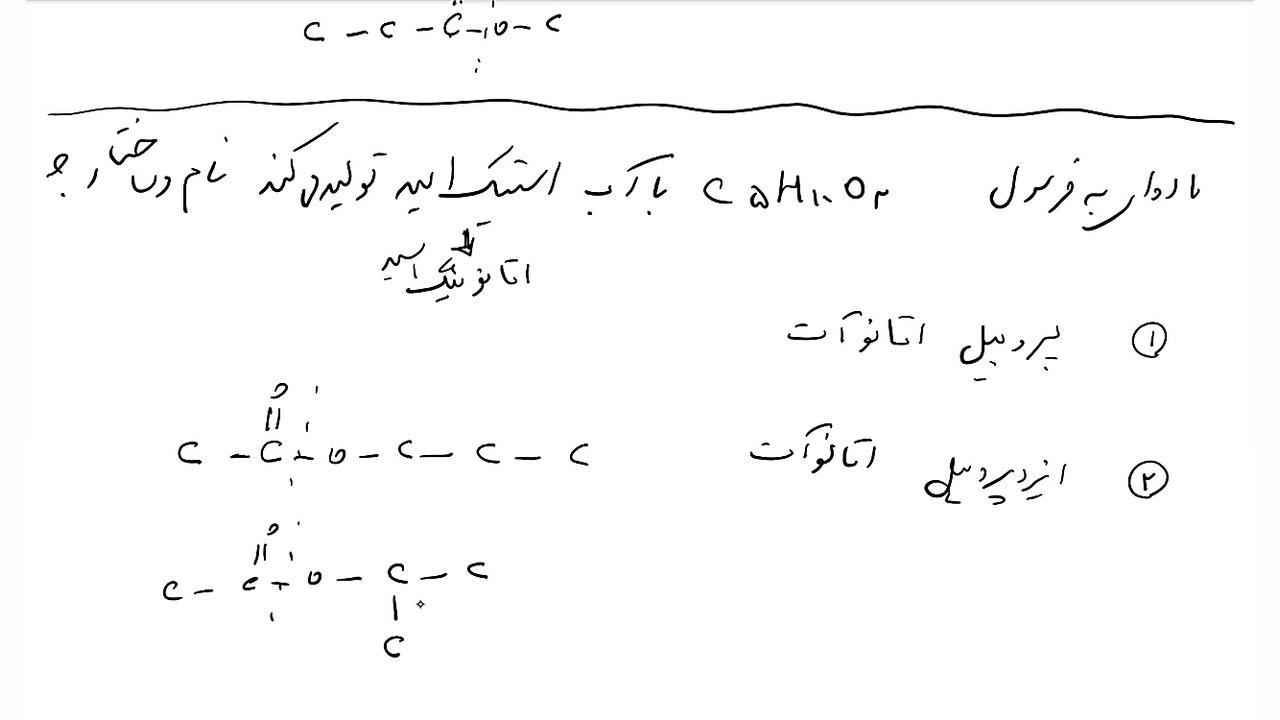 C - C - C - O - C
ماده ای به فرمول C۵H۱۰O۲ با آب استیک اسید تولید می کند نام و ساختار ؟
اتانوئیک اسید
① پروپیل اتانوآت
O
||
C - C - O - C - C - C
② ایزوپروپیل اتانوآت
O
||
C - C - O - C - C
|
C